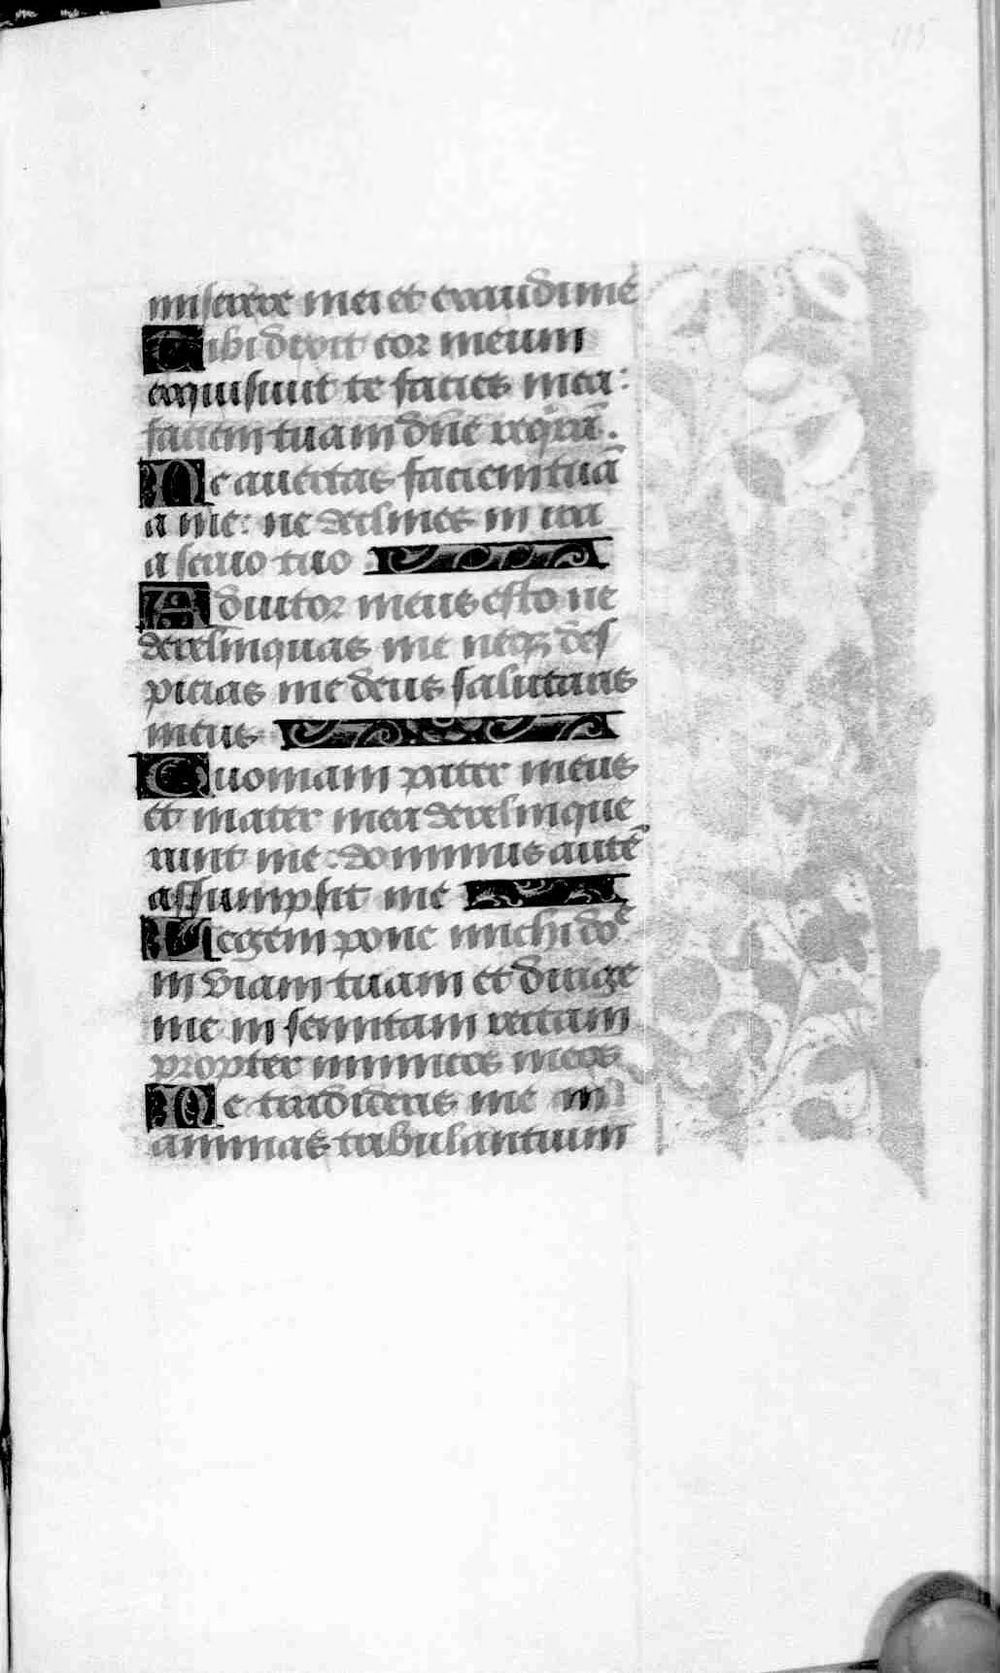 miserere mei et exaudi mē
Tibi dixit cor meum
exquisiuit te facies mea:
faciem tuam dn̄e reqirā.
Ne auertas faciem tuā
a me: ne declines in ira
a seruo tuo
Adiutor meus esto ne
derelinquas me neqʒ des
picias me deus salutaris
meus
Quoniam pater meus
et mater mea derelinque
runt me: dominus autē
assumpsit me
Legem pone michi dōe
in viam tuam et dirige
me in semitam rectam
propter inimicos meos
Ne tradideris me in
animas tribulantium